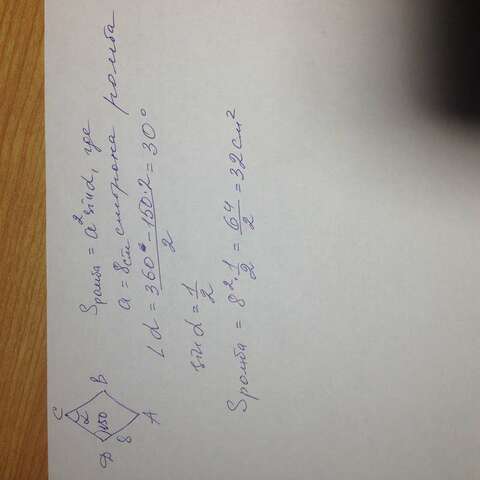 C
α
D 150 B
8
A
Sромба = a² sin α, где
a = 8 см сторона ромба
∠α = (360° - 150·2)/2 = 30°
sin α = 1/2
Sромба = 8² · 1/2 = 64/2 = 32 см²